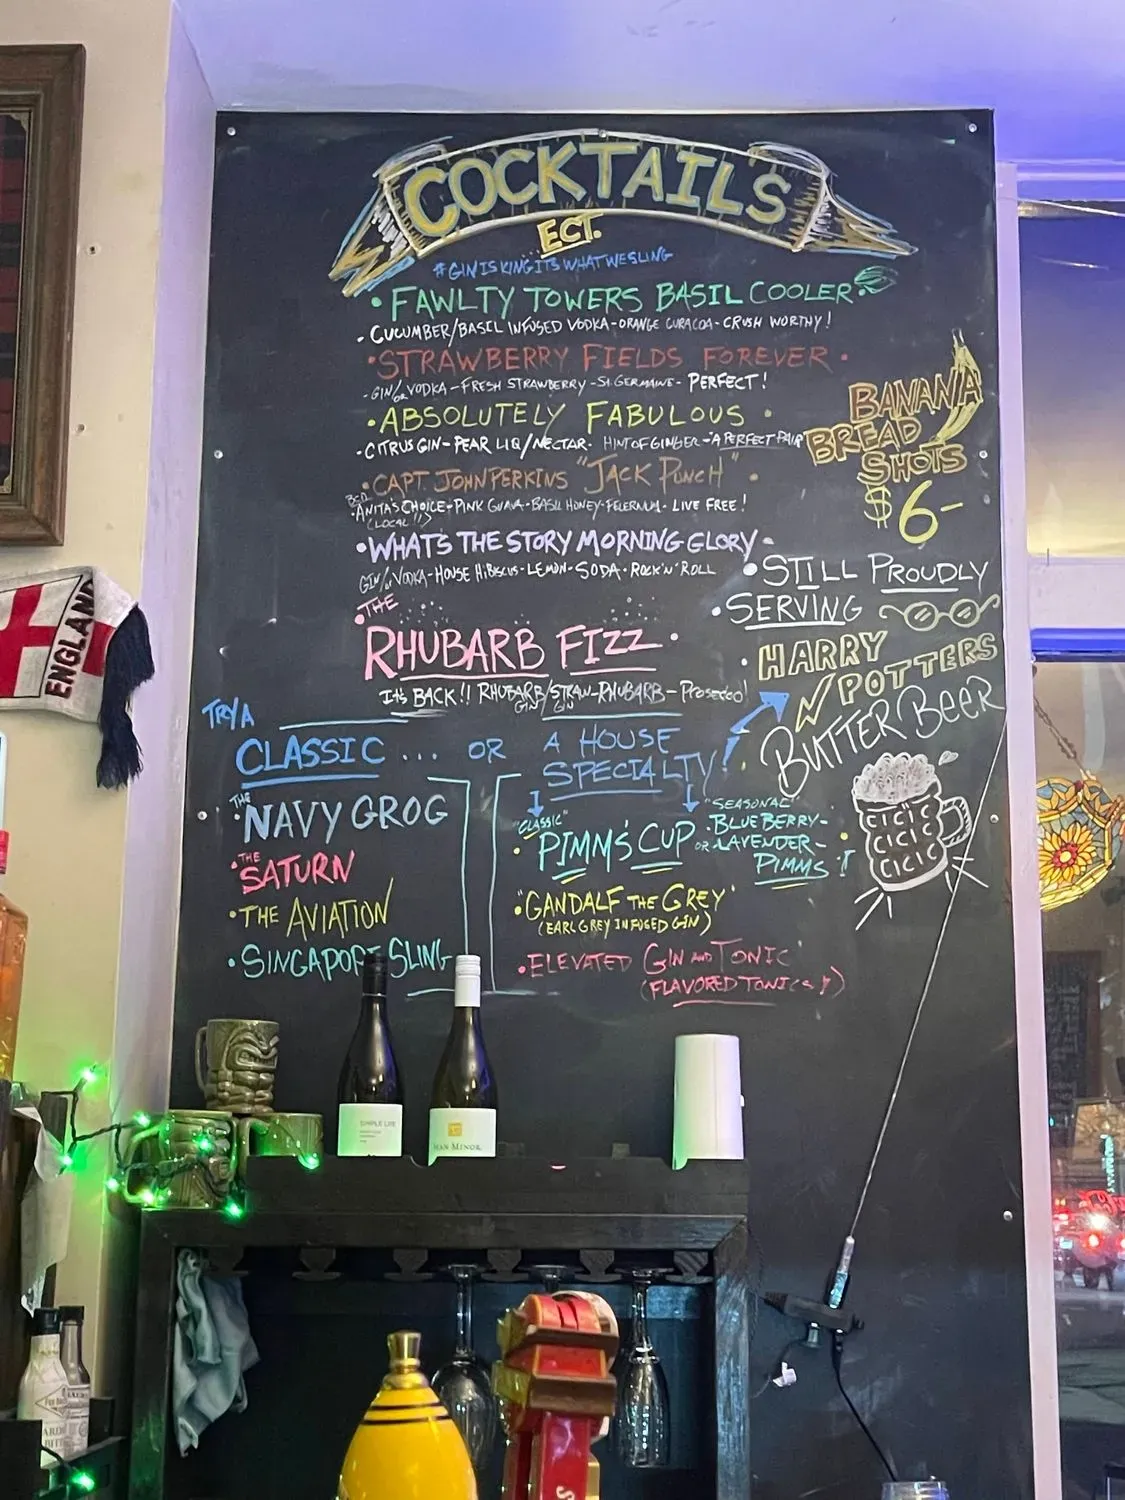 COCKTAILS
ECT.
#GINISKINGITSWHATWESLING
• FAWLTY TOWERS BASIL COOLER •
- CUCUMBER/BASIL INFUSED VODKA - ORANGE CURACOA - CRUSH WORTHY!
• STRAWBERRY FIELDS FOREVER •
- GIN/or VODKA - FRESH STRAWBERRY - ST. GERMAINE - PERFECT!
• ABSOLUTELY FABULOUS •
• CITRUS GIN - PEAR LIQ/NECTAR - HINT OF GINGER - A PERFECT PAIR
• CAPT. JOHN PERKINS "JACK PUNCH" •
ANITA'S CHOICE - PINK GUAVA - BASIL HONEY - FELERNUM - LIVE FREE!
(LOCAL!!)
• WHAT'S THE STORY MORNING GLORY •
GIN/or VODKA - HOUSE HIBISCUS - LEMON - SODA - ROCK 'N' ROLL
• THE
RHUBARB FIZZ •
IT'S BACK!! RHUBARB GIN/STRAW-RHUBARB GIN - PROSECCO!
BANANA
BREAD
SHOTS
$6-
• STILL PROUDLY
• SERVING
• HARRY
POTTERS
BUTTER BEER
CICIC
CICIC
CICIC
TRY A
CLASSIC ... OR A HOUSE
SPECIALTY!
• THE NAVY GROG
• THE SATURN
• THE AVIATION
• SINGAPORE SLING
"CLASSIC"
• PIMM'S CUP OR
"SEASONAL"
BLUEBERRY-
LAVENDER-
PIMMS
• "GANDALF THE GREY"
(EARL GREY INFUSED GIN)
• ELEVATED GIN AND TONIC
(FLAVORED TONICS!)
ENGLAND
SIMPLE LIFE
HAN MINOR